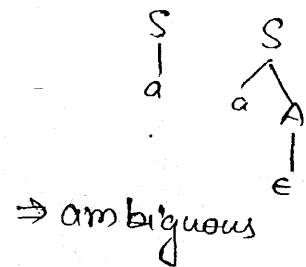 S S
a a A
ϵ
⇒ ambiguous